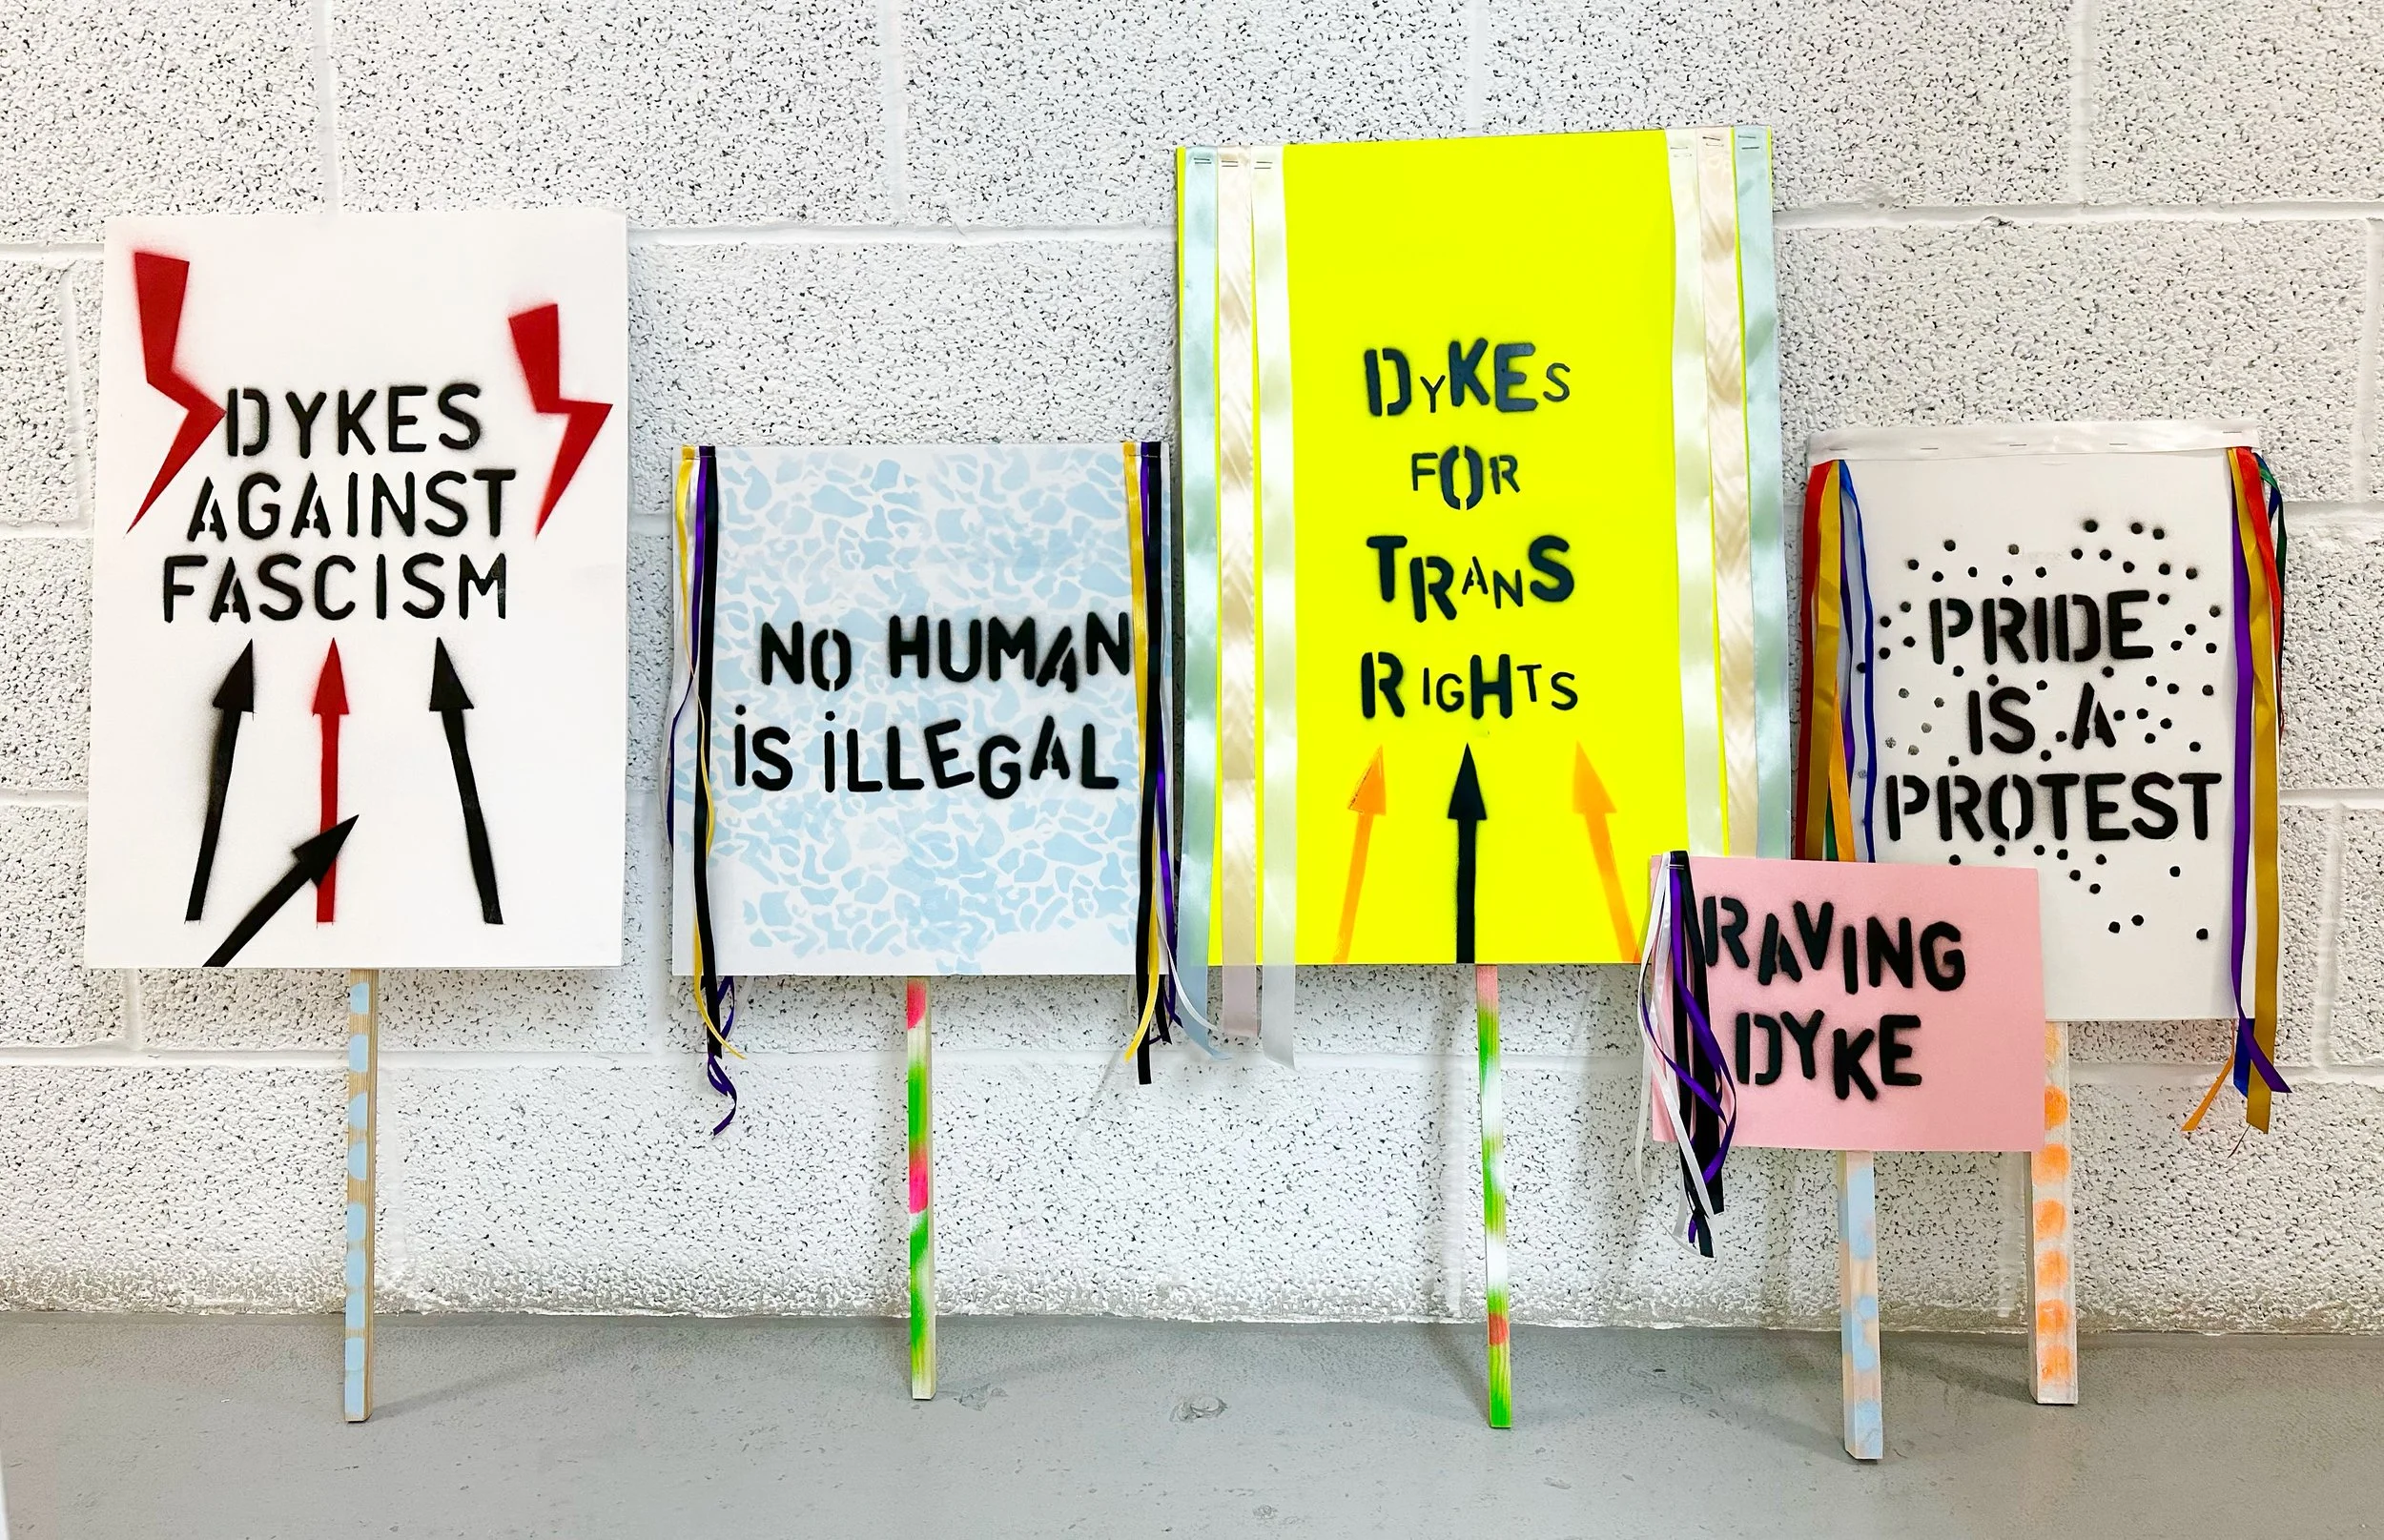 DYKES
AGAINST
FASCISM
NO HUMAN
iS iLLEGAL
DYKES
FOR
TRANS
RIGHTS
PRIDE
IS A
PROTEST
RAVING
DYKE